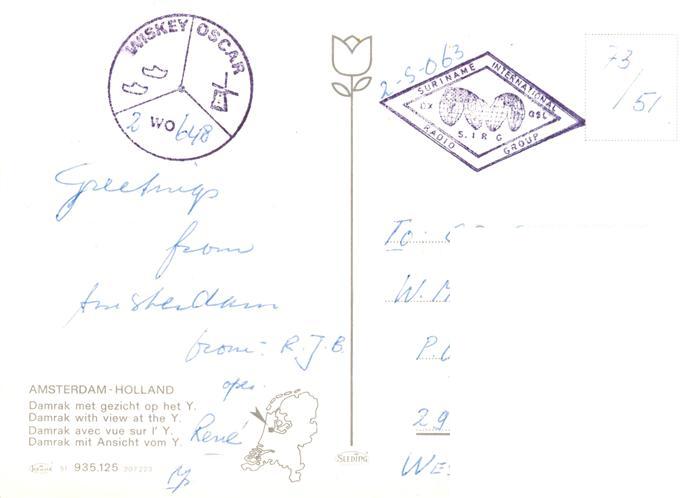 WISKEY OSCAR
2 WO 648
2-S-063
SURINAME INTERNATIONAL
DX QSL
S.I.R.G
RADIO GROUP
73
/ 51
Greetings
from
Amsterdam
from: R.J.B
oper.
René
To:
W. M
P.
29
WE
AMSTERDAM-HOLLAND
Damrak met gezicht op het Y.
Damrak with view at the Y.
Damrak avec vue sur l' Y.
Damrak mit Ansicht vom Y.
51 935.125 207223
SLEDING